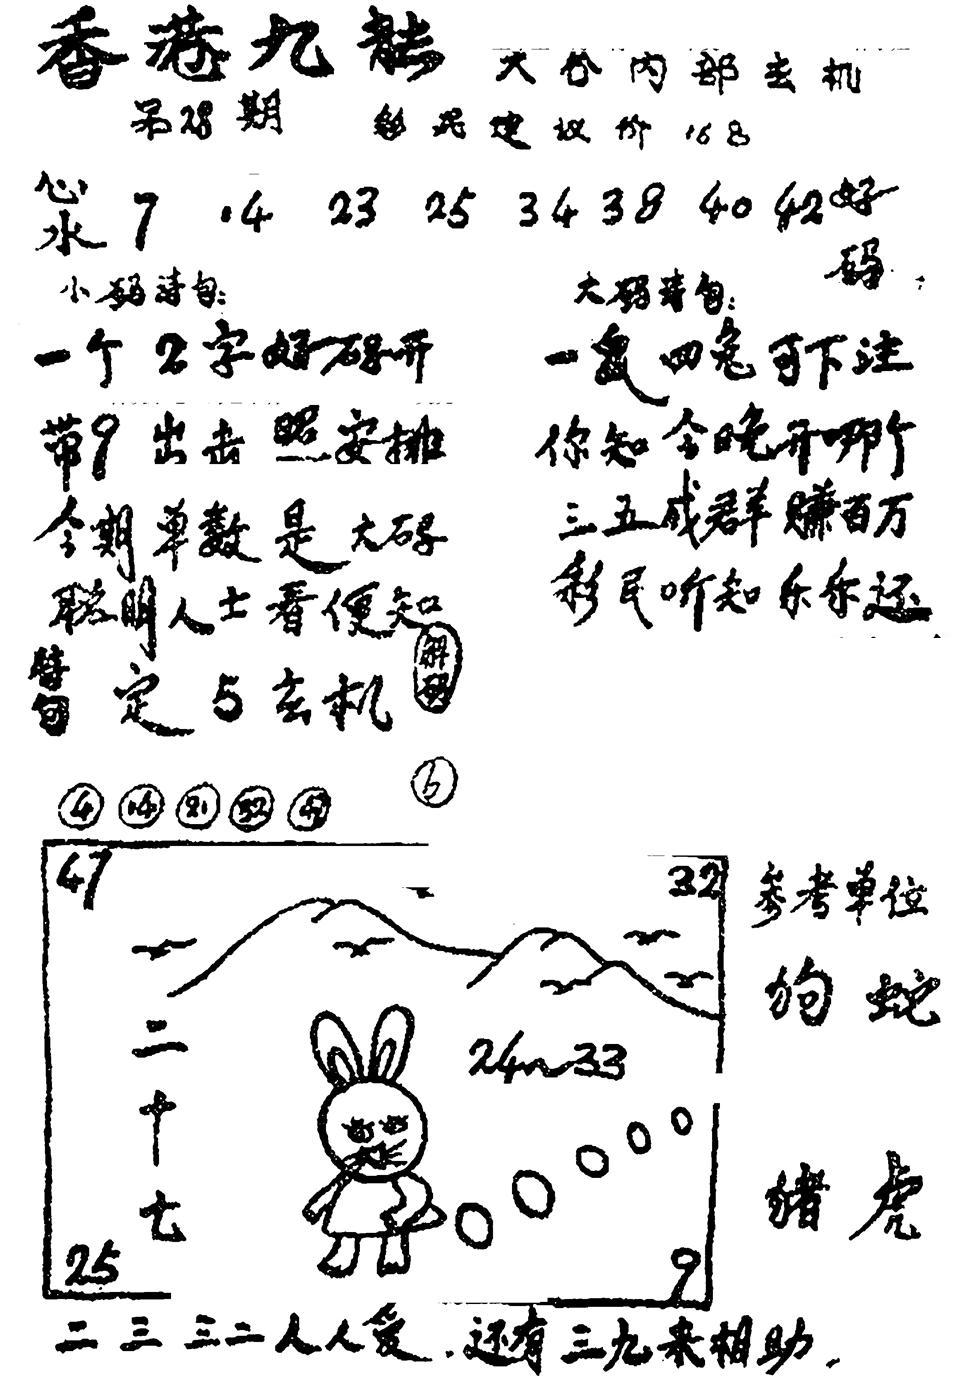 香港九龍
大谷内部玄机
第28期 彩民建议价168
心水 7 14 23 25 34 38 40 42 好码
小码诗句:
一个2字好码开
带9出击照安排
今期单数是大码
聪明人士看便知
大码诗句:
一盘四兔可下注
你知今晚开哪个
三五成群赚百万
彩民听知乐乐还
特句 定5玄机
解码
4 14 21 32 42
47
32
二十七
24~33
25
9
参考单位
狗 蛇
猪 虎
二三三二人人爱.还有三九来相助.